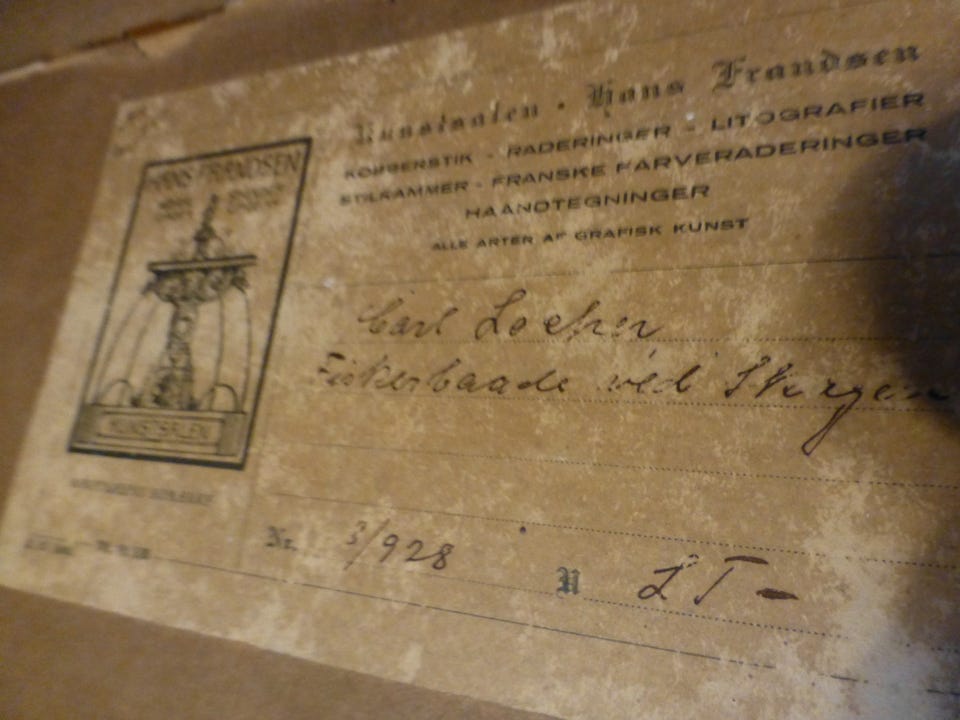 HANS FRANDSEN
KUNSTSALEN
Kunstsalen · Hans Frandsen
KOBBERSTIK - RADERINGER - LITOGRAFIER
STILRAMMER - FRANSKE FARVERADERINGER
HAANDTEGNINGER
ALLE ARTER AF GRAFISK KUNST
Carl Locher
Fiskerbaade ved Skagen
Nr. 3/928